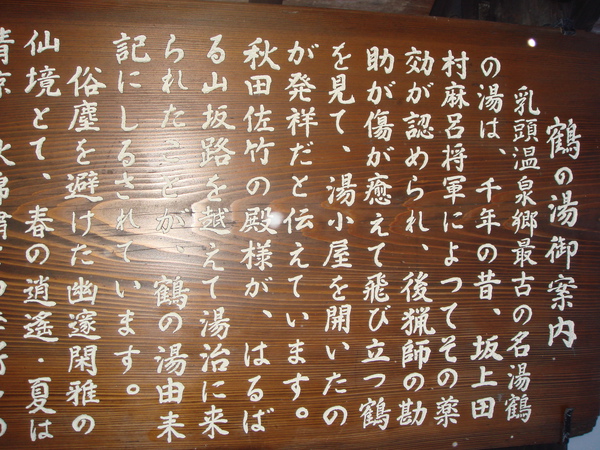 鶴の湯御案内
乳頭温泉郷最古の名湯鶴
の湯は、千年の昔、坂上田
村麻呂将軍によつてその薬
効が認められ、後猟師の勘
助が傷が癒えて飛び立つ鶴
を見て、湯小屋を開いたの
が発祥だと伝えています。
秋田佐竹の殿様が、はるば
る山坂路を越えて湯治に来
られたことが、鶴の湯由来
記にしるされています。
俗塵を避けた幽邃閑雅の
仙境とて、春の逍遙・夏は